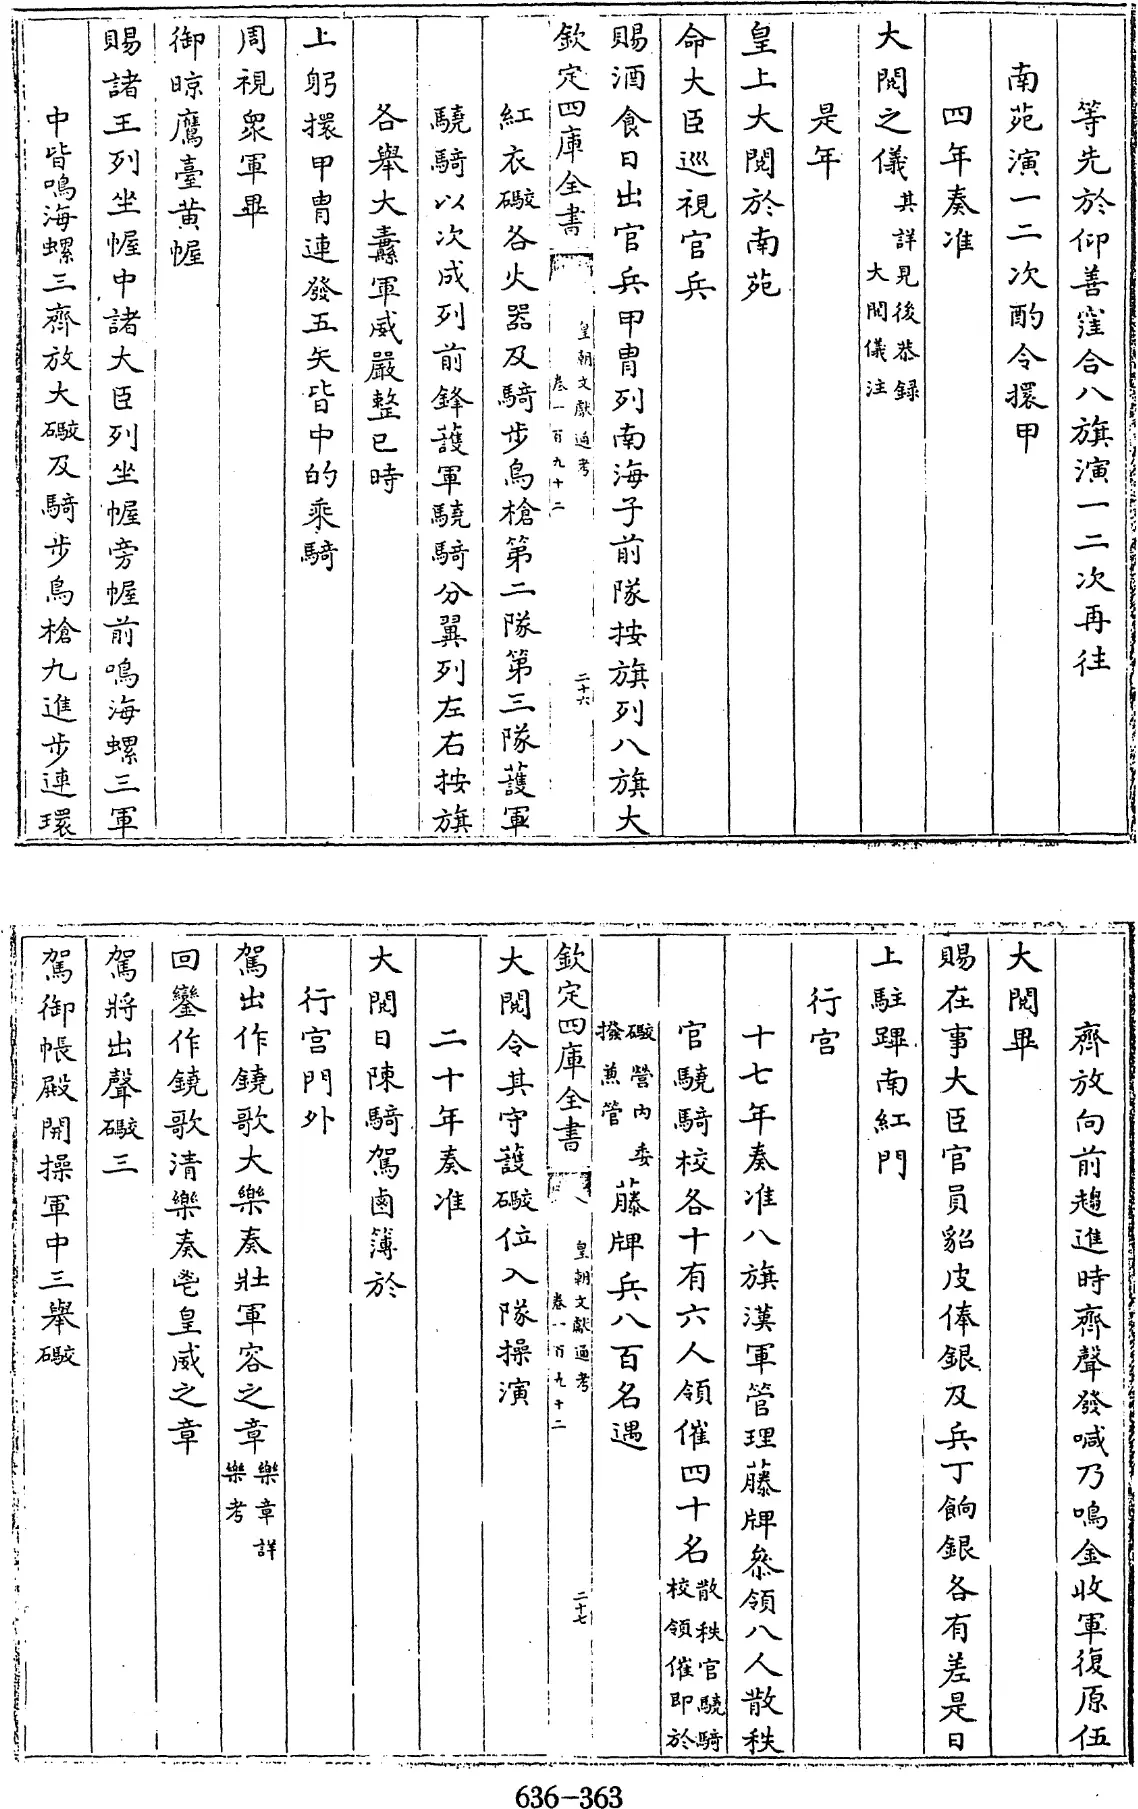 等先於仰善窪合八旗演一二次再往
南苑演一二次酌令擐甲
四年奏准
大閱之儀其詳見後恭錄大閱儀注
是年
皇上大閱於南苑
命大臣巡視官兵
賜酒食日出官兵甲冑列南海子前隊按旗列八旗大
欽定四庫全書 皇朝文獻通考 卷一百九十二 二十六
紅衣礮各火器及騎步鳥槍第二隊第三隊護軍
驍騎以次成列前鋒護軍驍騎分翼列左右按旗
各舉大纛軍威嚴整已時
上躬擐甲冑連發五矢皆中的乘騎
周視衆軍畢
御晾鷹臺黃幄
賜諸王列坐幄中諸大臣列坐幄旁幄前鳴海螺三軍
中皆鳴海螺三齊放大礮及騎步鳥槍九進步連環
齊放向前趨進時齊聲發喊乃鳴金收軍復原伍
大閱畢
賜在事大臣官員貂皮俸銀及兵丁餉銀各有差是日
上駐蹕南紅門
行宮
十七年奏准八旗漢軍管理藤牌叅領八人散秩
官驍騎校各十有六人領催四十名散秩官驍騎校領催即於
礮營內委撥兼管藤牌兵八百名遇
欽定四庫全書 皇朝文獻通考 卷一百九十二 二十七
大閱令其守護礮位入隊操演
二十年奏准
大閱日陳騎駕鹵簿於
行宮門外
駕出作鐃歌大樂奏壯軍容之章樂章詳樂考
回鑾作鐃歌清樂奏鬯皇威之章
駕將出聲礮三
駕御帳殿開操軍中三舉礮
636-363